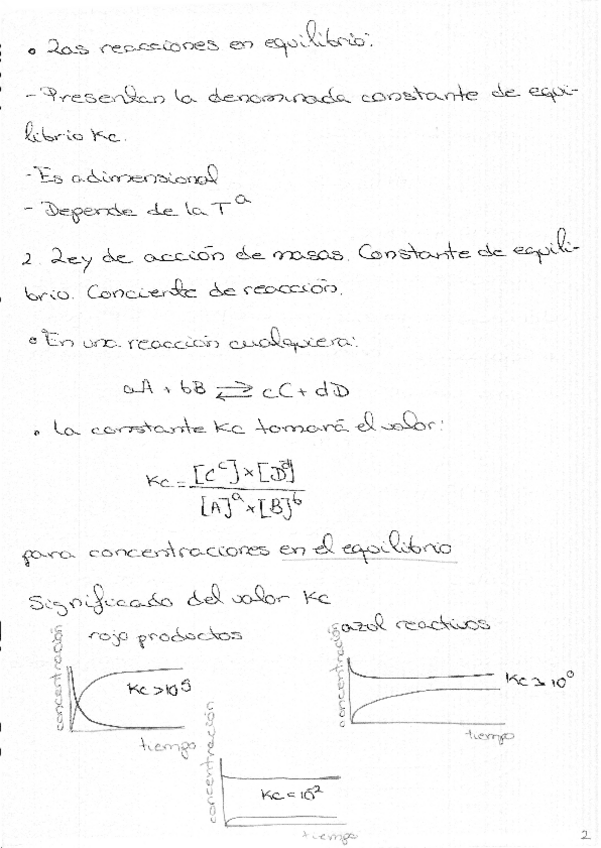 • Las reacciones en equilibrio:
- Presentan la denominada constante de equi-
librio Kc.
- Es adimensional
- Depende de la Tª
2. Ley de acción de masas. Constante de equili-
brio. Conciente de reacción.
• En una reacción cualquiera:
aA + bB ⇄ cC + dD
• La constante Kc tomará el valor:
Kc = [C^c] × [D]^d / [A]^a × [B]^b
para concentraciones en el equilibrio
Significado del valor Kc
rojo productos
azul reactivos
concentración
Kc > 10^5
tiempo
concentración
tiempo
concentración
Kc = 10^2
tiempo
2